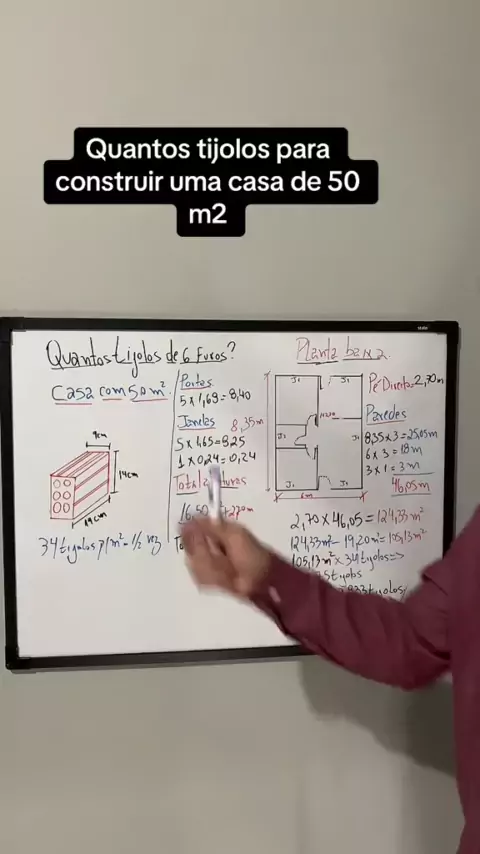 Quantos tijolos para
construir uma casa de 50
m2
Quantos tijolos de 6 Furos?
Casa com 50 m²
9cm
14cm
19cm
34 tijolos p/m² = 1/2 vez
Portas
5 x 1,68 = 8,40
Janelas
5 x 1,65 = 8,25
1 x 0,24 = 0,24
16,50
Planta baixa
J1
J1
8,35m
6m
J1
J1
J1
Pé Direito = 2,70m
Paredes
8,35 x 3 = 25,05m
6 x 3 = 18m
3 x 1 = 3m
46,05m
2,70 x 46,05 = 124,33m²
124,33m² - 19,20m² = 105,13m²
105,13m² x 34 tijolos =>